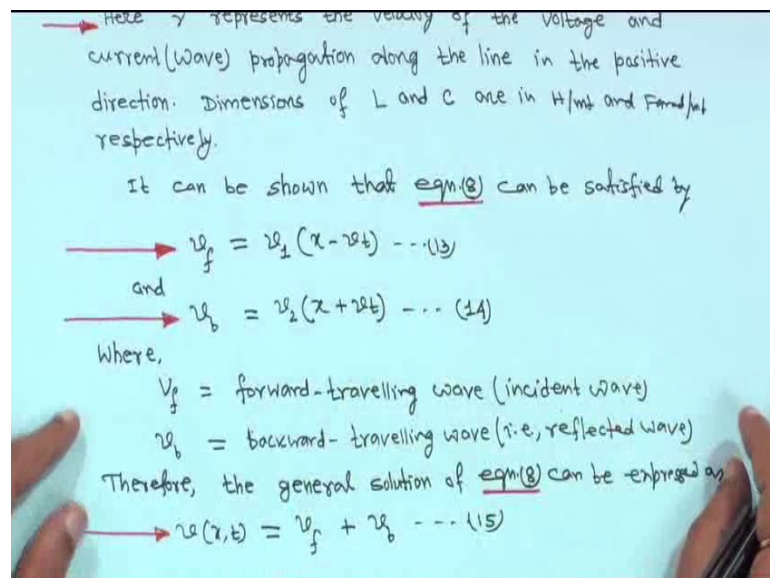 Here v represents the velocity of the voltage and
current (wave) propagation along the line in the positive
direction. Dimensions of L and C are in H/mt and Farad/mt
respectively.
It can be shown that eqn.(8) can be satisfied by
v_f = v_1 (x - vt) --- (13)
and
v_b = v_2 (x + vt) --- (14)
Where,
V_f = forward-travelling wave (incident wave)
v_b = backward-travelling wave (i.e, reflected wave)
Therefore, the general solution of eqn.(8) can be expressed as
v(x,t) = v_f + v_b --- (15)